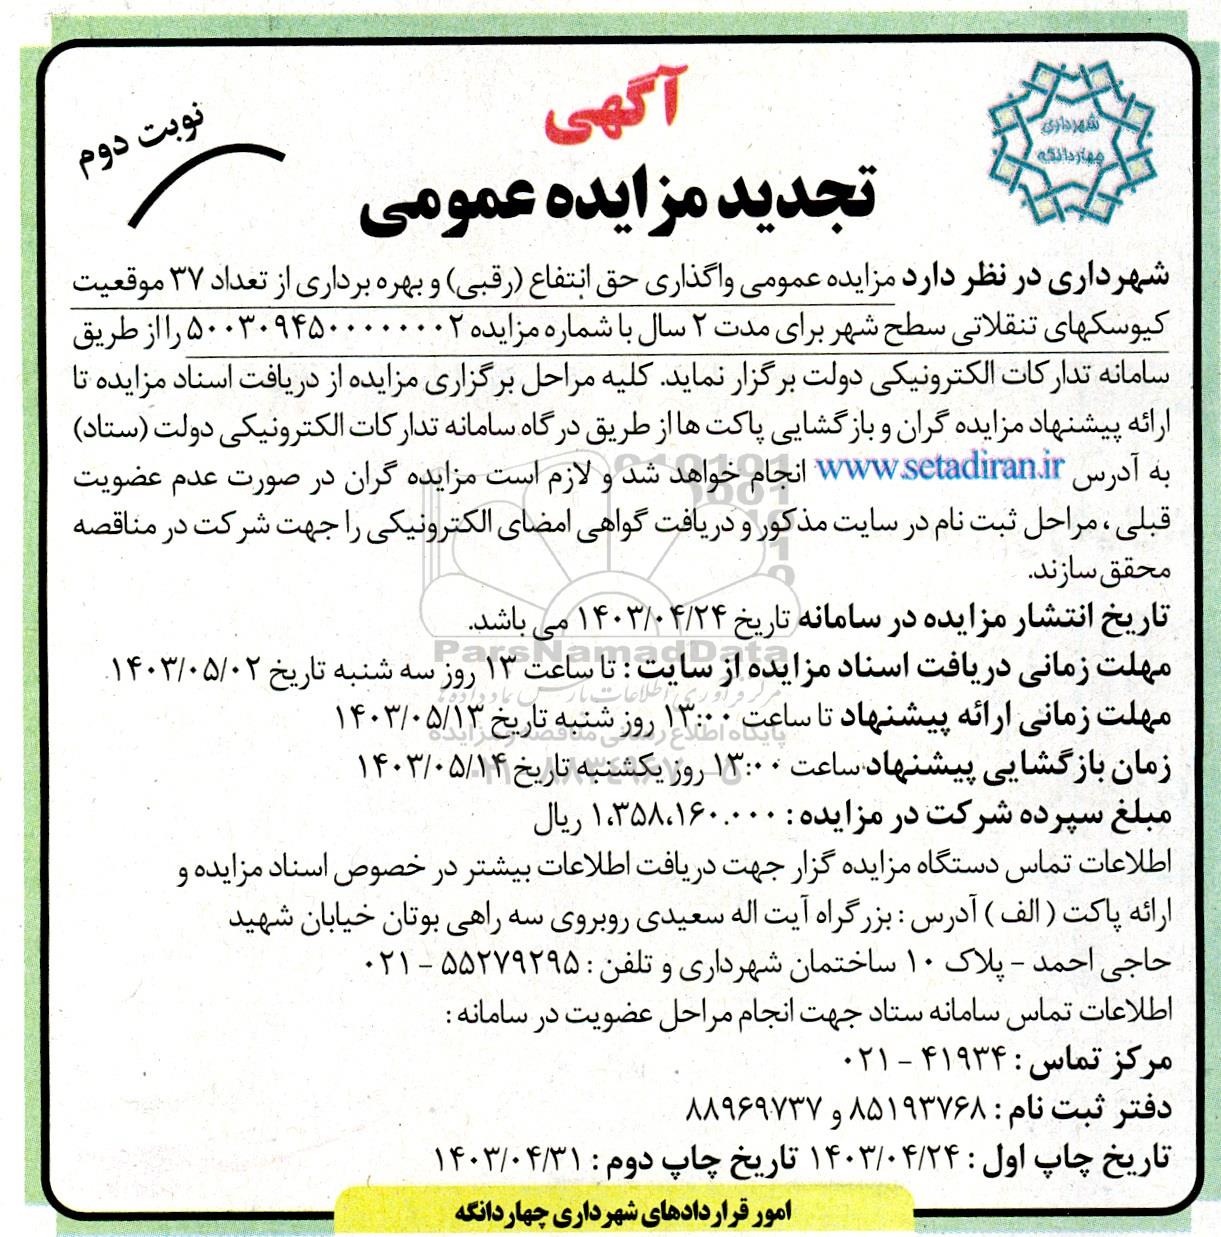 شهرداری
چهاردانگه
آگهی
نوبت دوم
تجدید مزایده عمومی
شهرداری در نظر دارد مزایده عمومی واگذاری حق انتفاع (رقبی) و بهره برداری از تعداد ۳۷ موقعیت
کیوسکهای تنقلاتی سطح شهر برای مدت ۲ سال با شماره مزایده ۵۰۰۳۰۹۴۵۰۰۰۰۰۰۰۲ را از طریق
سامانه تدارکات الکترونیکی دولت برگزار نماید. کلیه مراحل برگزاری مزایده از دریافت اسناد مزایده تا
ارائه پیشنهاد مزایده گران و بازگشایی پاکت ها از طریق درگاه سامانه تدارکات الکترونیکی دولت (ستاد)
به آدرس www.setadiran.ir انجام خواهد شد و لازم است مزایده گران در صورت عدم عضویت
قبلی ، مراحل ثبت نام در سایت مذکور و دریافت گواهی امضای الکترونیکی را جهت شرکت در مناقصه
محقق سازند.
تاریخ انتشار مزایده در سامانه تاریخ ۱۴۰۳/۰۴/۲۴ می باشد.
ParsNamadData
مهلت زمانی دریافت اسناد مزایده از سایت : تا ساعت ۱۳ روز سه شنبه تاریخ ۱۴۰۳/۰۵/۰۲
مرکز فرآوری اطلاعات پارس نماد داده ها
مهلت زمانی ارائه پیشنهاد تا ساعت ۱۳:۰۰ روز شنبه تاریخ ۱۴۰۳/۰۵/۱۳
پایگاه اطلاع رسانی مناقصه و مزایده
زمان بازگشایی پیشنهاد ساعت ۱۳:۰۰ روز یکشنبه تاریخ ۱۴۰۳/۰۵/۱۴
مبلغ سپرده شرکت در مزایده : ۱،۳۵۸،۱۶۰.۰۰۰ ریال
اطلاعات تماس دستگاه مزایده گزار جهت دریافت اطلاعات بیشتر در خصوص اسناد مزایده و
ارائه پاکت ( الف ) آدرس : بزرگراه آیت اله سعیدی روبروی سه راهی بوتان خیابان شهید
حاجی احمد - پلاک ۱۰ ساختمان شهرداری و تلفن : ۵۵۲۷۹۲۹۵ - ۰۲۱
اطلاعات تماس سامانه ستاد جهت انجام مراحل عضویت در سامانه :
مرکز تماس : ۴۱۹۳۴ - ۰۲۱
دفتر ثبت نام : ۸۵۱۹۳۷۶۸ و ۸۸۹۶۹۷۳۷
تاریخ چاپ اول : ۱۴۰۳/۰۴/۲۴ تاریخ چاپ دوم : ۱۴۰۳/۰۴/۳۱
امور قراردادهای شهرداری چهاردانگه